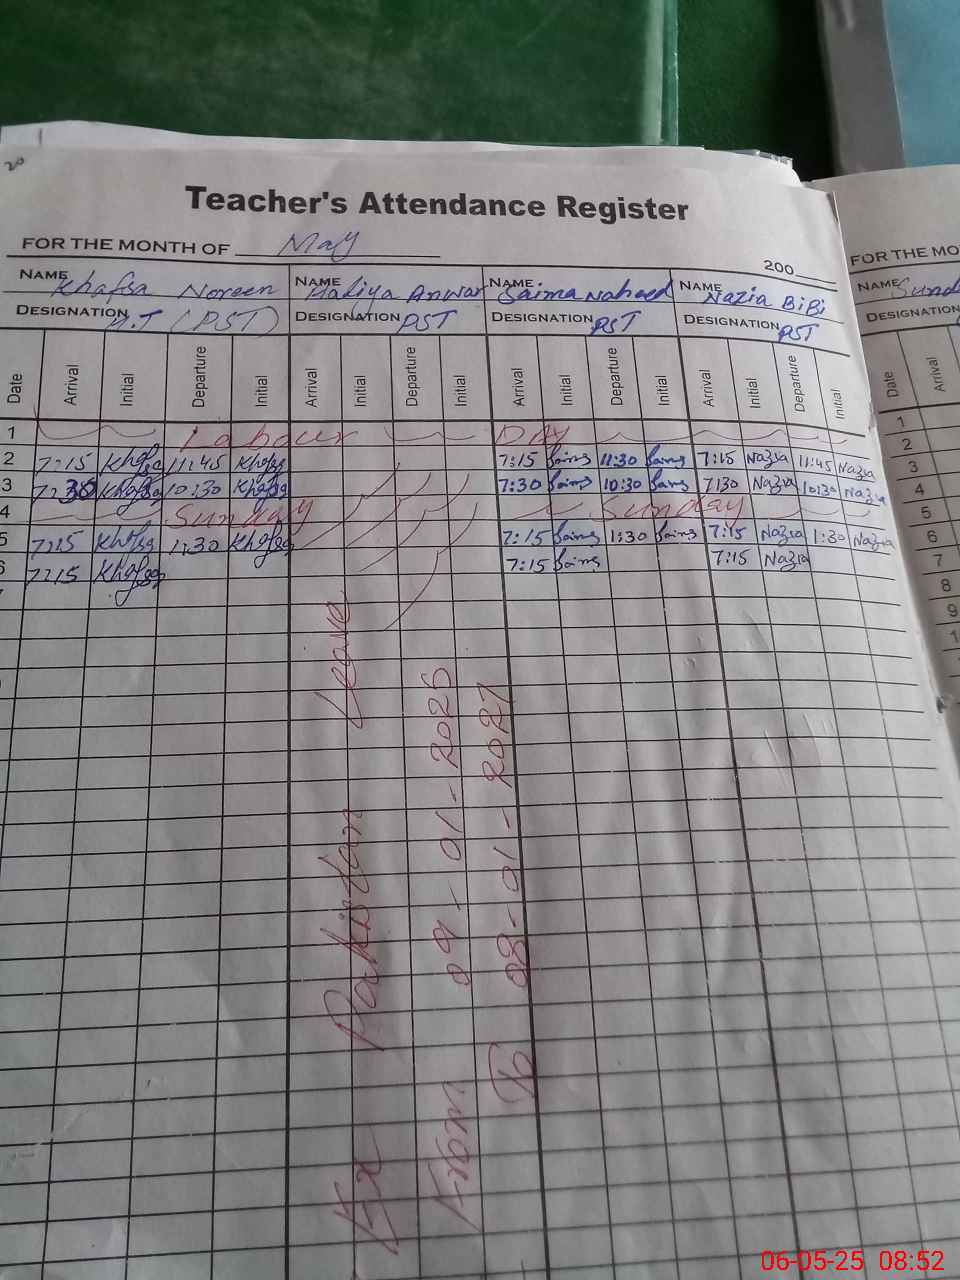 20
Teacher's Attendance Register
FOR THE MONTH OF May
200
NAME Khafsa Noreen NAME Hadiya Anwar NAME Saima Naheed NAME Nazia BiBi
DESIGNATION H.T (PST) DESIGNATION PST DESIGNATION PST DESIGNATION PST
Date Arrival Initial Departure Initial Arrival Initial Departure Initial Arrival Initial Departure Initial Arrival Initial Departure Initial
1 Labour Day
2 7:15 Khafsa 11:45 Khafsa 7:15 Saima 11:30 Saima 7:15 Nazia 11:45 Nazia
3 7:30 Khafsa 10:30 Khafsa 7:30 Saima 10:30 Saima 7:30 Nazia 10:30 Nazia
4 Sunday Sunday
5 7:15 Khafsa 1:30 Khafsa 7:15 Saima 1:30 Saima 7:15 Nazia 1:30 Nazia
6 7:15 Khafsa 7:15 Saima 7:15 Nazia
Ex Pakistan Leave
From 09-01-2025
To 08-01-2027
FOR THE MO
NAME Sund
DESIGNATION
Date Arrival
1
2
3
4
5
6
7
8
9
1
06-05-25 08:52